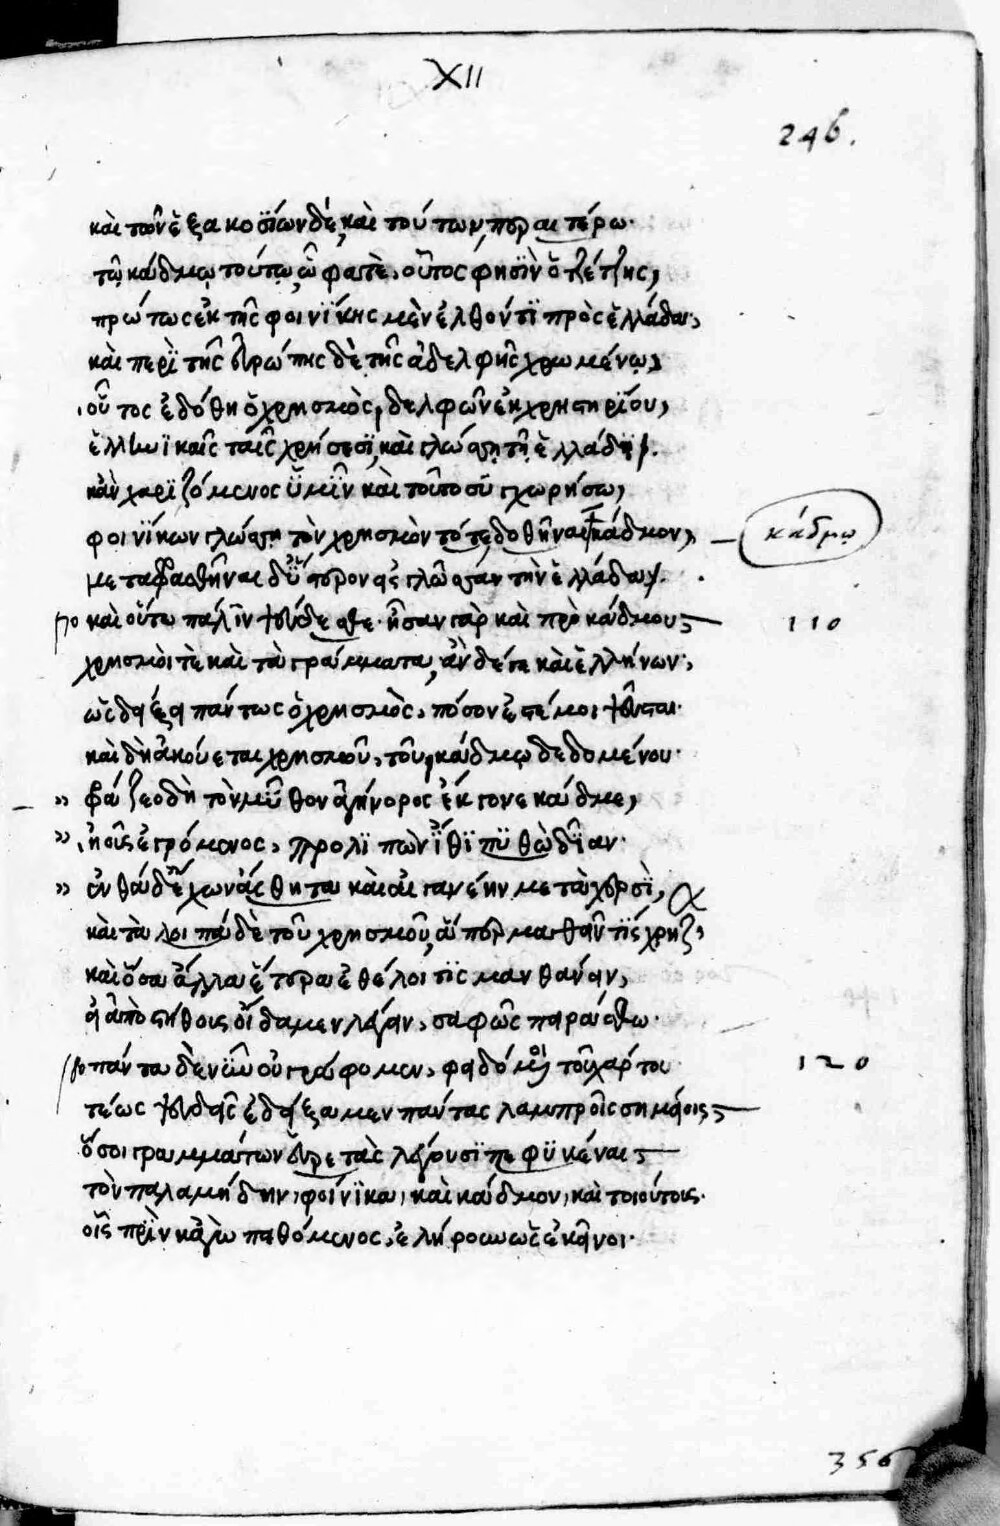 XII
246.
καὶ τῶν ἑξακοσίων δέ, καὶ τούτων, περαιτέρω·
τῷ κάδμῳ τούτῳ, ὦ φατὲ, οὗτος φησὶν ὁ τζέτζης,
πρώτως ἐκ τῆς φοινίκης μὲν ἐλθόντι πρὸς ἑλλάδα,
καὶ περὶ τῆς εὐρώπης δὲ τῆς ἀδελφῆς χρωμένῳ,
οὗτος ἐδόθη ὁ χρησμὸς, δελφῶν ἐκ χρηστηρίου,
ἑλληνικαῖς ταῖς χρήσεσι, καὶ γλώσσῃ τῇ ἑλλάδι.
κἂν χαριζόμενος ὑμῖν καὶ τοῦτο συγχωρήσω,
φοινίκων γλώσσῃ τὸν χρησμὸν τότε δοθῆναι κάδμον, κάδμῳ
μεταφρασθῆναι δ' ὕστερον εἰς γλῶσσαν τὴν ἑλλάδα.
καὶ οὕτω πάλιν ψεύδεσθε· ἦσαν γὰρ καὶ πρὸ κάδμου 110
χρησμοί τε καὶ τὰ γράμματα, ἀνδρῶν τε καὶ ἑλλήνων,
ὡς δείξει πάντως ὁ χρησμὸς, πόσον ἐστέ μοι ψεῦσται·
καὶ δὴ ἀκούεται χρησμοῦ, τοῦ κάδμῳ δεδομένου·
φράζεο δὴ τὸν μῦθον ἀγήνορος ἔκγονε κάδμε,
ἠοῦς ἐγρόμενος, προλιπὼν ἴθι πυθὼ δῖαν·
ἐνθάδ' ἔχων ἐσθῆτα καὶ αἰγανέην μετὰ χερσὶ,
καὶ τὰ λοιπὰ δὲ τοῦ χρησμοῦ, ἅπερ μαθεῖν τίς χρήζει
καὶ ὅσα ἄλλα ἕτερα ἐθέλοι τὶς μανθάνειν,
εἰ ἀπὸ στήθους οἴδαμεν λέγειν, σαφῶς παρέστω·
πάντα δὲ νῦν οὐ γράφομεν, φειδόμενοι τοῦ χάρτου 120
τέως ψευδεῖς ἐδείξαμεν πάντας λαμπροῖς σημείοις
ὅσοι γραμμάτων εὑρετὰς λέγουσι πεφυκέναι
τὸν παλαμήδην, φοίνικα, καὶ κάδμον, καὶ τοιούτους·
οἷς πρὶν κἀγὼ πειθόμενος, ἐλήρουν ὡς ἐκεῖνοι·
356